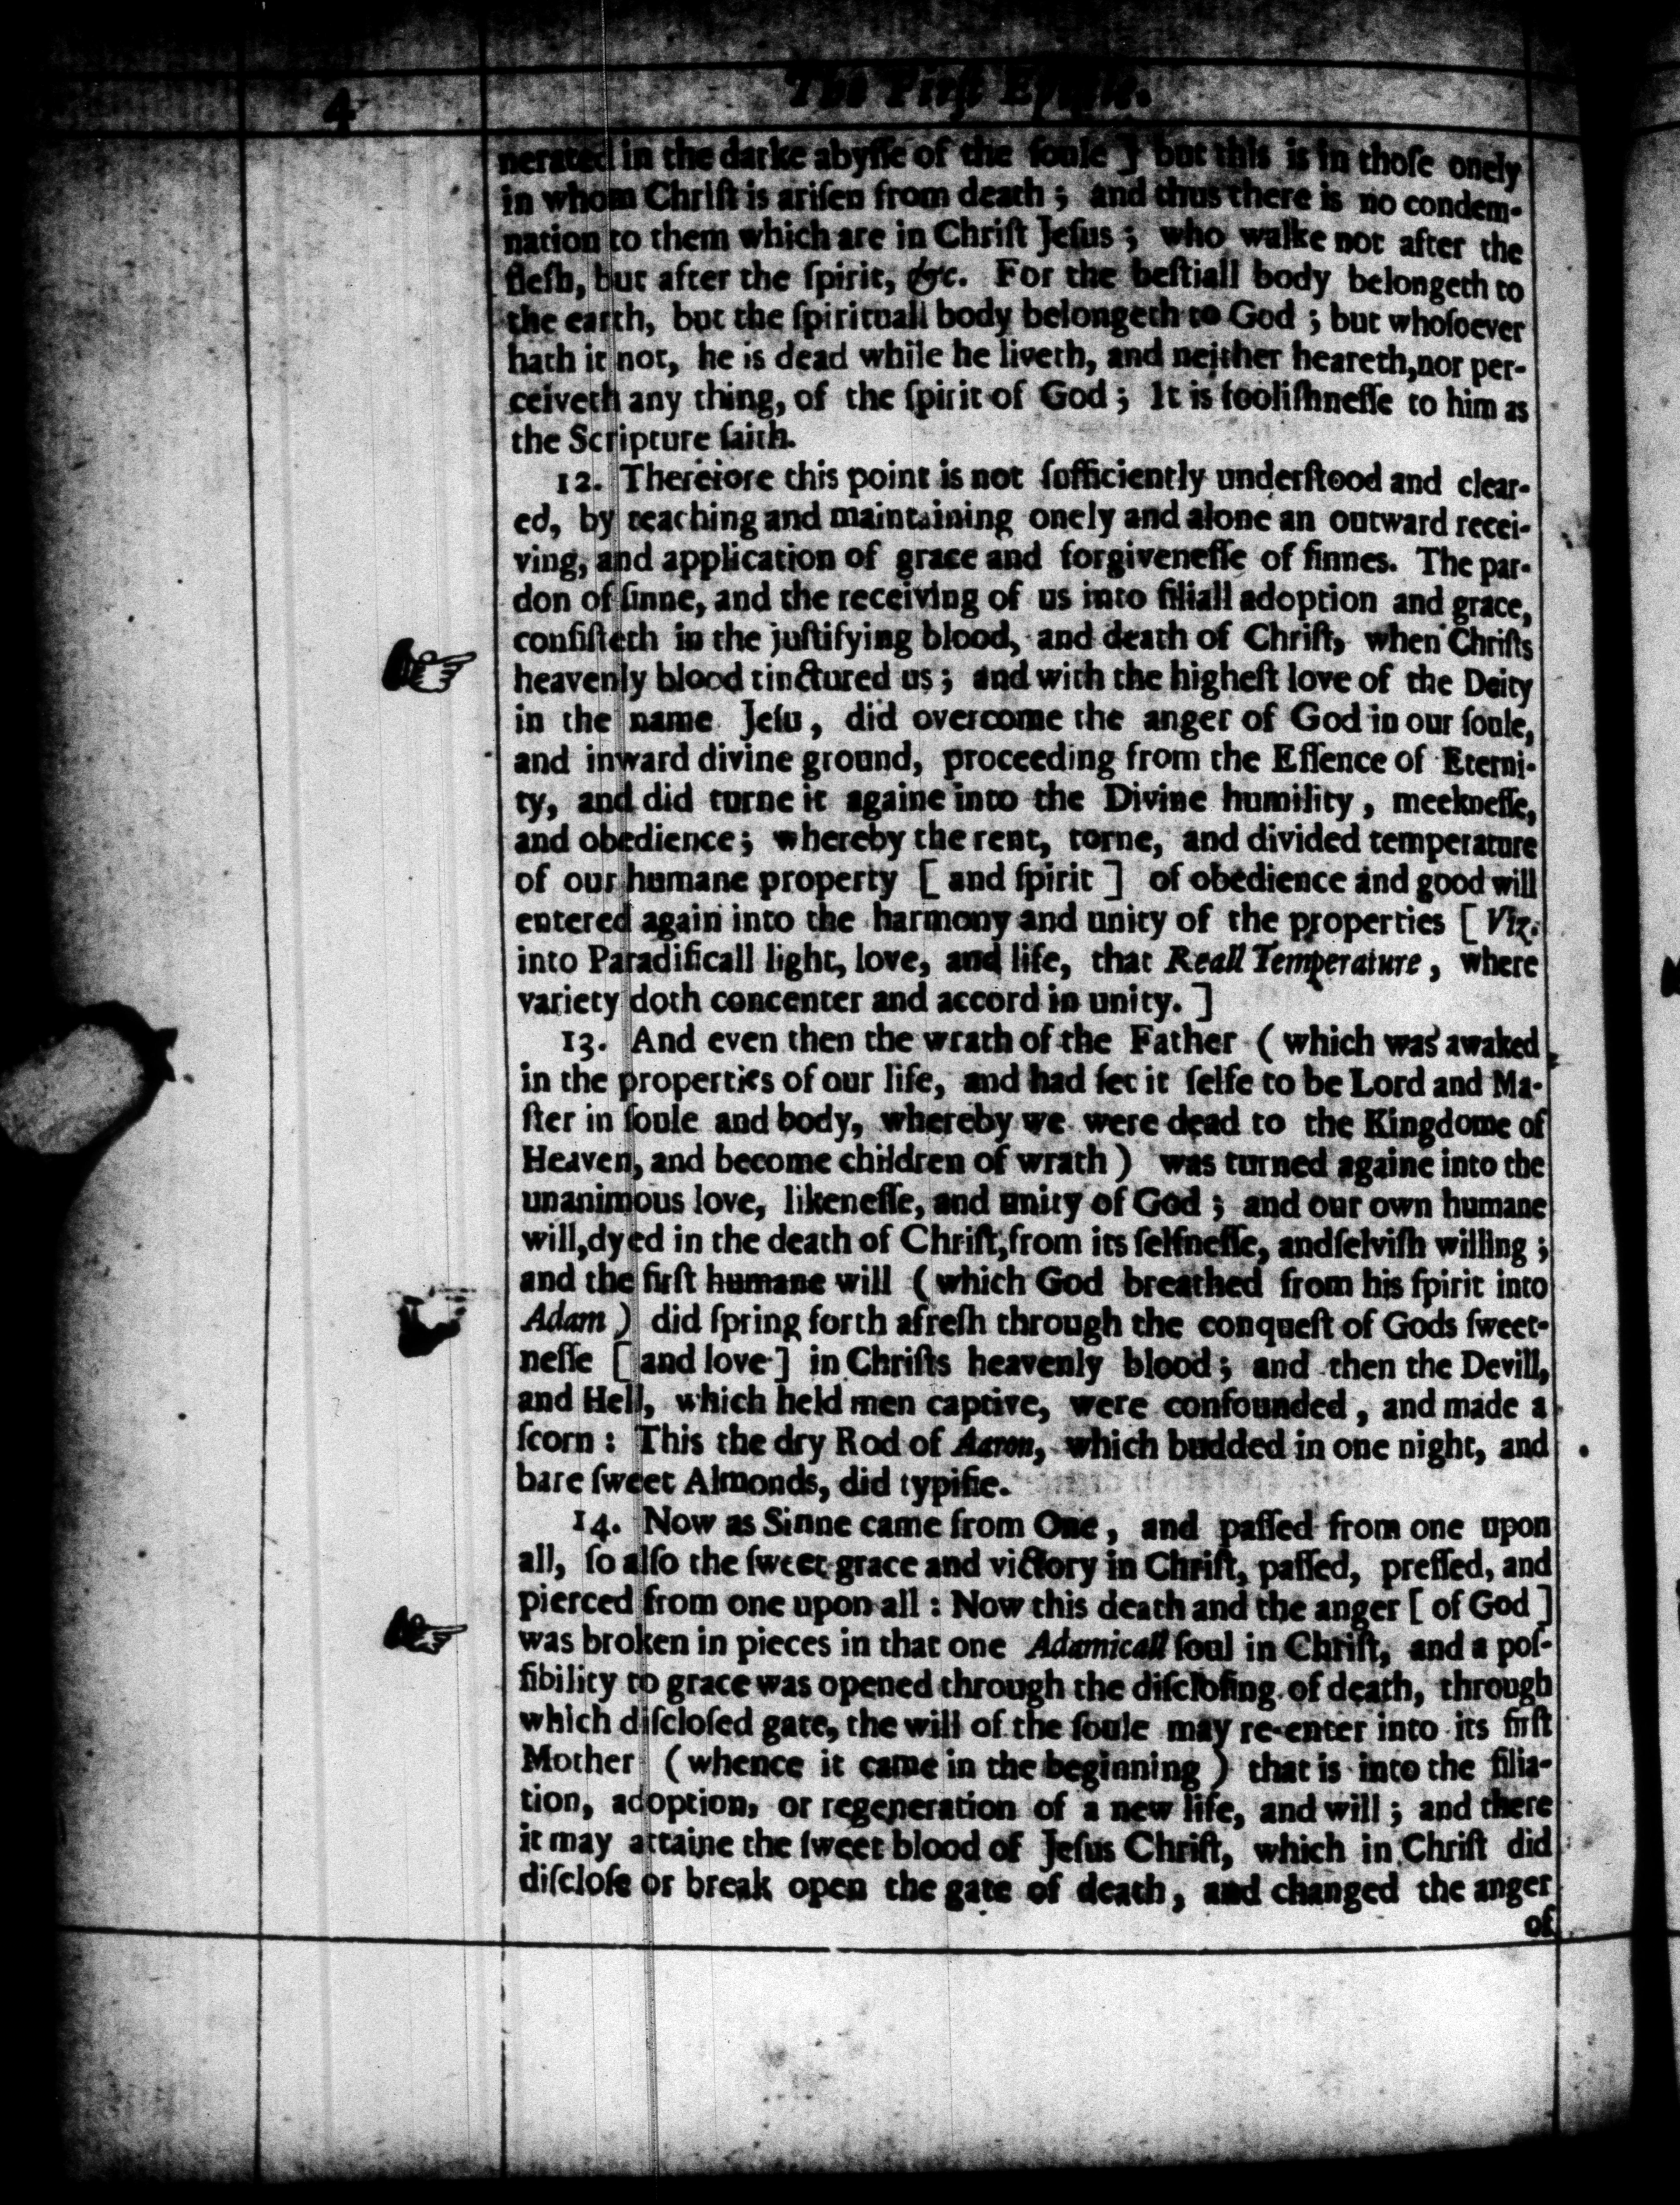 4
The First Epistle.
nerated in the darke abysse of the soule ] but this is in those onely
in whom Christ is arisen from death ; and thus there is no condem-
nation to them which are in Christ Jesus ; who walke not after the
flesh, but after the spirit, &c. For the bestiall body belongeth to
the earth, but the spirituall body belongeth to God ; but whosoever
hath it not, he is dead while he liveth, and neither heareth,nor per-
ceiveth any thing, of the spirit of God ; It is foolishnesse to him as
the Scripture saith.
12. Therefore this point is not sufficiently understood and clear-
ed, by teaching and maintaining onely and alone an outward recei-
ving, and application of grace and forgivenesse of sinnes. The par-
don of sinne, and the receiving of us into filiall adoption and grace,
consisteth in the justifying blood, and death of Christ, when Christs
heavenly blood tinctured us ; and with the highest love of the Deity
in the name Jesu, did overcome the anger of God in our soule,
and inward divine ground, proceeding from the Essence of Eterni-
ty, and did turne it againe into the Divine humility, meeknesse,
and obedience ; whereby the rent, torne, and divided temperature
of our humane property [ and spirit ] of obedience and good will
entered again into the harmony and unity of the properties [ Viz.
into Paradificall light, love, and life, that Reall Temperature, where
variety doth concenter and accord in unity. ]
13. And even then the wrath of the Father ( which was awaked
in the properties of our life, and had set it selfe to be Lord and Ma-
ster in soule and body, whereby we were dead to the Kingdome of
Heaven, and become children of wrath ) was turned againe into the
unanimous love, likenesse, and unity of God ; and our own humane
will,dyed in the death of Christ,from its selfnesse, andselvish willing ;
and the first humane will ( which God breathed from his spirit into
Adam ) did spring forth afresh through the conquest of Gods sweet-
nesse [ and love ] in Christs heavenly blood ; and then the Devill,
and Hell, which held men captive, were confounded, and made a
scorn : This the dry Rod of Aaron, which budded in one night, and
bare sweet Almonds, did typifie.
14. Now as Sinne came from One, and passed from one upon
all, so also the sweet grace and victory in Christ, passed, pressed, and
pierced from one upon all : Now this death and the anger [ of God ]
was broken in pieces in that one Adamicall soul in Christ, and a pos-
sibility to grace was opened through the disclosing of death, through
which disclosed gate, the will of the soule may re-enter into its first
Mother ( whence it came in the beginning ) that is into the filia-
tion, adoption, or regeneration of a new life, and will ; and there
it may attaine the sweet blood of Jesus Christ, which in Christ did
disclose or break open the gate of death, and changed the anger
of